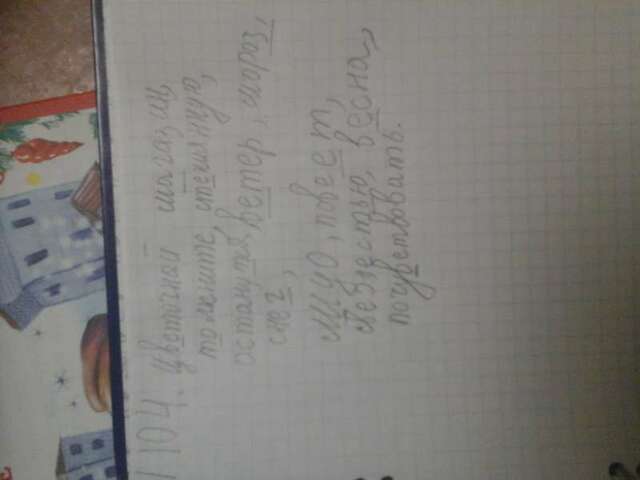 1104. Цветочный магазин,
толкните, стеклянную,
останутся, ветер, мороз,
снег,
повеет,
свежестью, весна,
почувствовать.